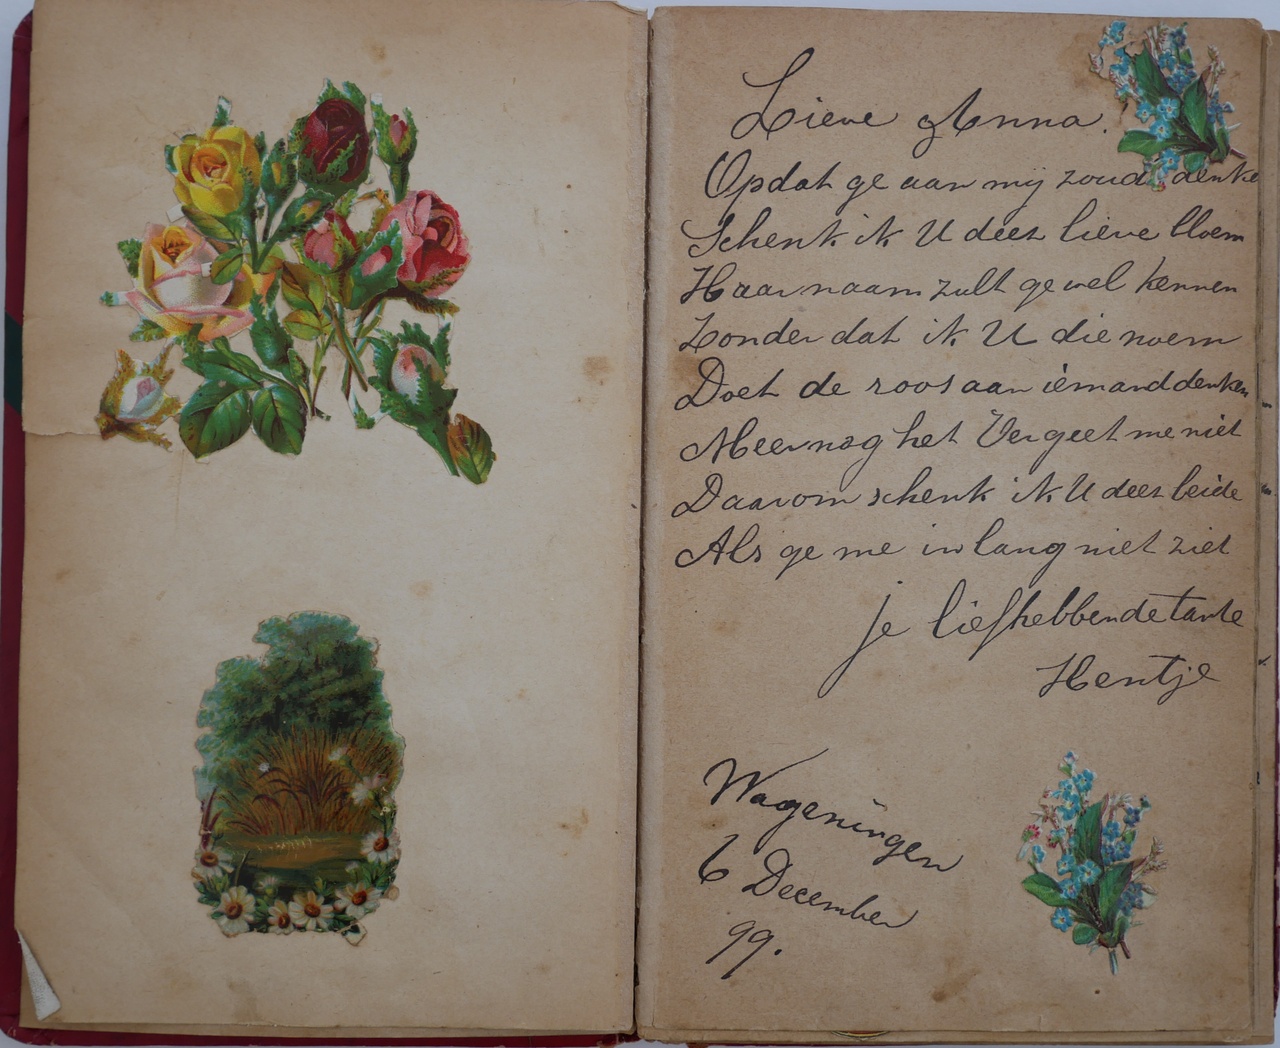 Lieve Anna.
Opdat ge aan mij zoud denke
Schenk ik U deez lieve bloem
Haar naam zult ge wel kennen
Zonder dat ik U die noem
Doet de roos aan iemand denken
Meer nog het Vergeet me niet
Daarom schenk ik U deez beide
Als ge me in lang niet ziet
je liefhebbende tante
Hentje
Wageningen
6 December
99.